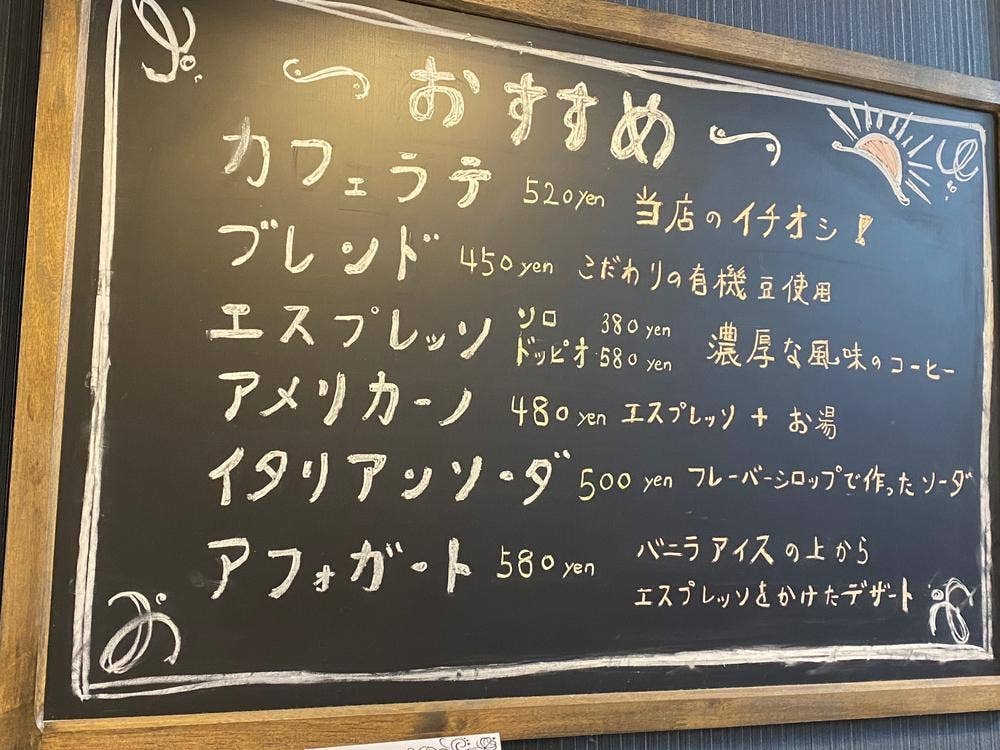 おすすめ
カフェラテ 520yen 当店のイチオシ!
ブレンド 450yen こだわりの有機豆使用
エスプレッソ ソロ 380yen 濃厚な風味のコーヒー
ドッピオ 580yen
アメリカーノ 480yen エスプレッソ + お湯
イタリアンソーダ 500yen フレーバーシロップで作ったソーダ
アフォガート 580yen バニラアイスの上から
エスプレッソをかけたデザート